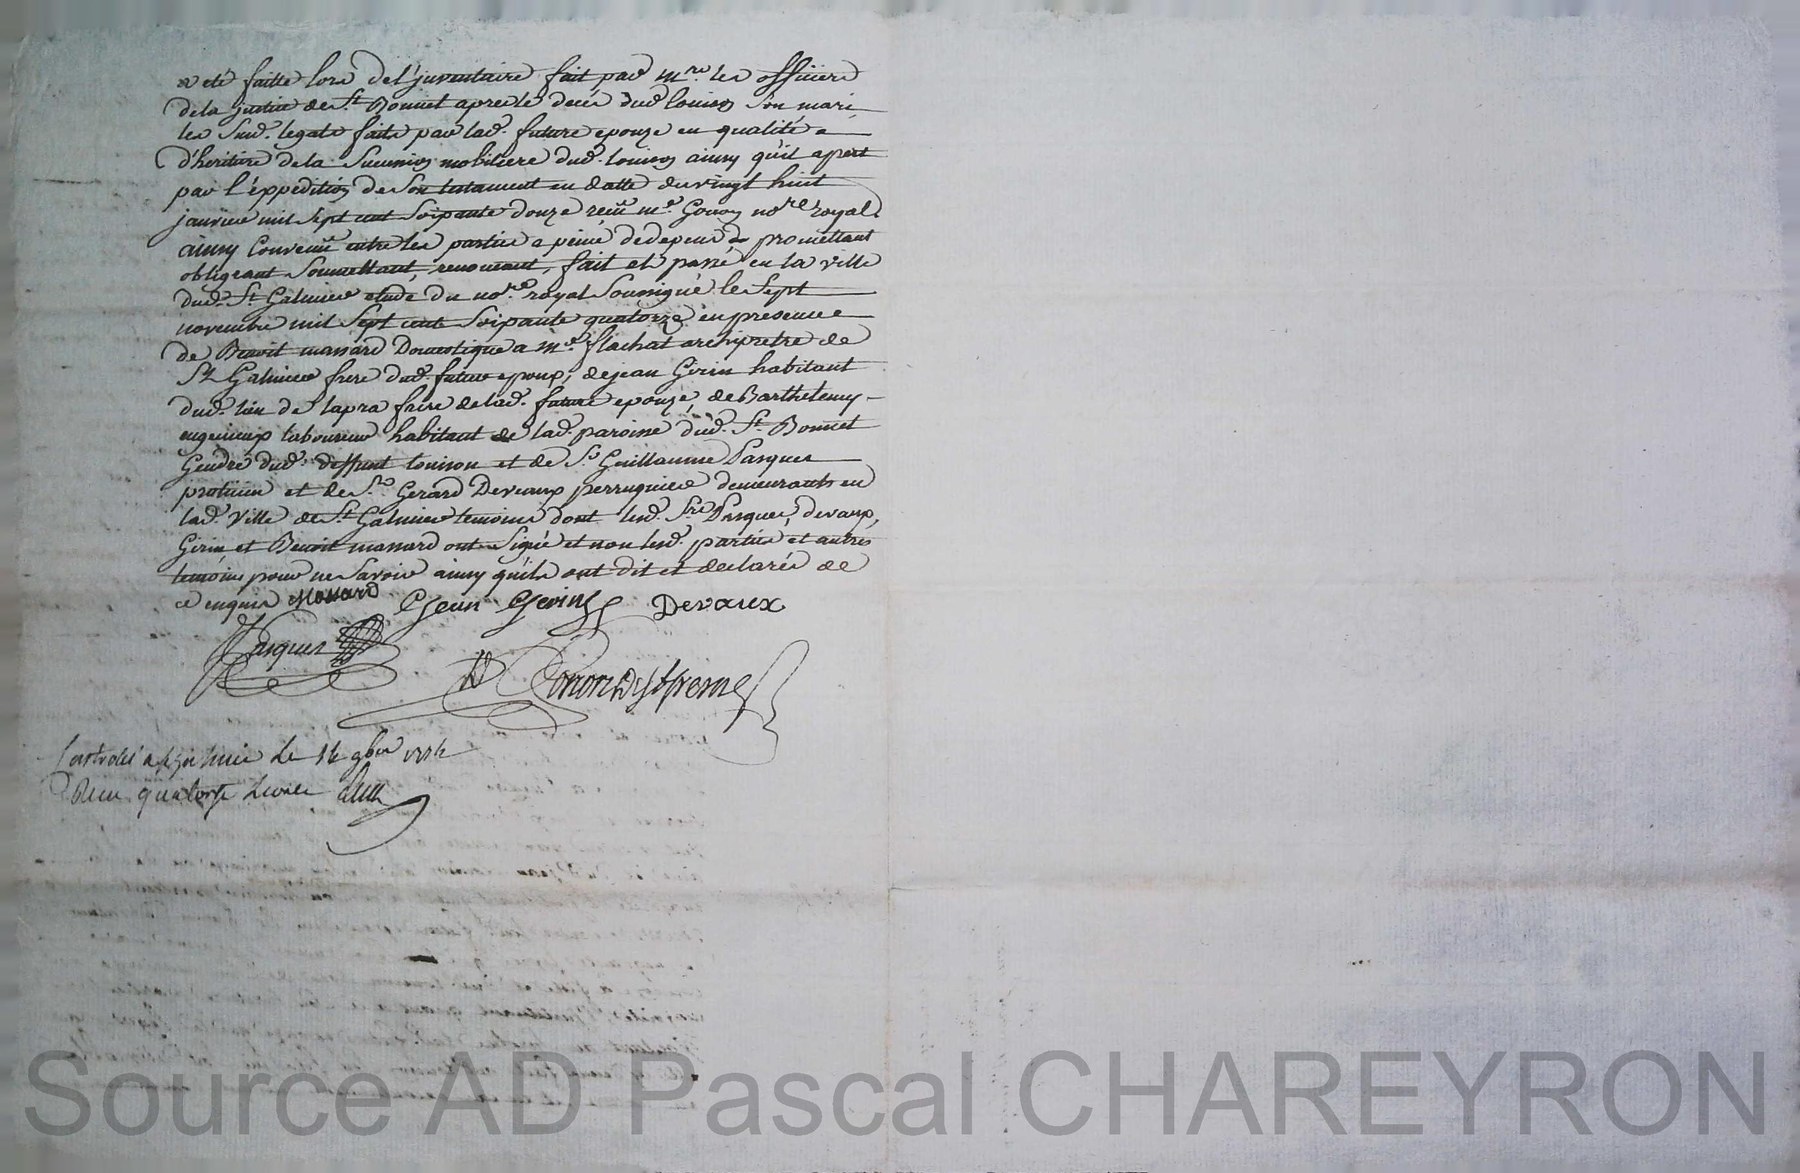 a eté faitte lors de l'juventaire fait par mrs. les officiers
de la justice de St. Bonnet apres le decés dud. louison son mari,
les sud. legats faits par lad. future epouze en qualité
d'heritiere de la sucession mobiliere dud. louison ainsy qu'il apert
par l'éxpedition de son testament en datte du vingt huit
janvier mil sept cent soixante douze reçu me. Gonon nore. royal
ainsy convenu entre les parties a peine de depens promettant
obligeant soumettant, renonceant, fait et passé en la ville
dud. St. Galmier etude du nore. royal soussigné le sept
novembre mil sept cent soixante quatorze en presence
de Benoit massard Domestique a mr. flachat archipretre de
St Galmier frere dud. futur epoux, de jean Girin habitant
dud. lieu de lapra frere de lad. future epouze, de Barthelemy
laboureur habitant de lad. paroisse dud. St. Bonnet
Gendre dud. deffunt louison et de Sr. Guillaume Pasquer
praticien et de Sr. Gerard Devaux perruquier demeurants en
lad. ville de St. Galmier temoins dont lesd. Srs Pasquer, devaux,
Girin, et Benoit massard ont signé et non lesd. parties et autres
temoins pour ne savoir ainsy qu'ils ont dit et declarés de
ce enquis Massard Jean Gerin Devaux
Pasquer Gonon
Controlé a St Galmier le 14 9bre 1774
Recu quatorze livres
Source AD Pascal CHAREYRON